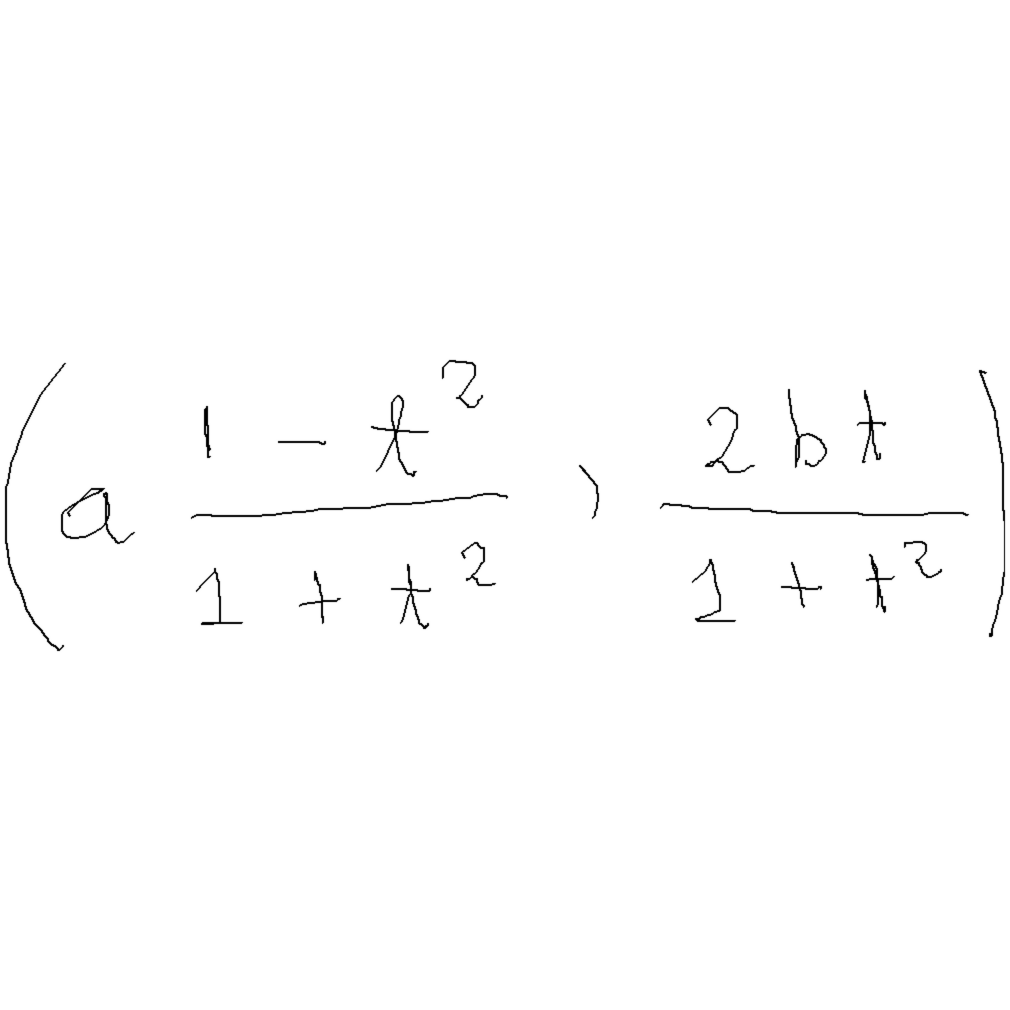 \left( a \frac{1 - t^2}{1 + t^2} , \frac{2 b t}{1 + t^2} \right)